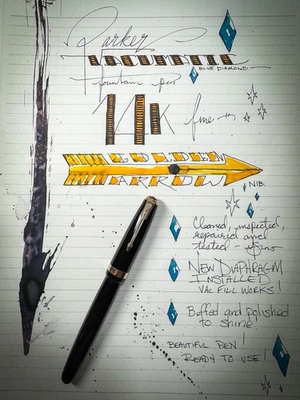 Parker
VACUMATIC
BLUE DIAMOND
fountain pen
14K fine
GOLDEN
ARROW NIB
Cleaned, inspected,
repaired and
tested
NEW DIAPHRAGM
INSTALLED
VAC FILL WORKS!
Buffed and polished
to shine
BEAUTIFUL PEN!
READY TO USE!